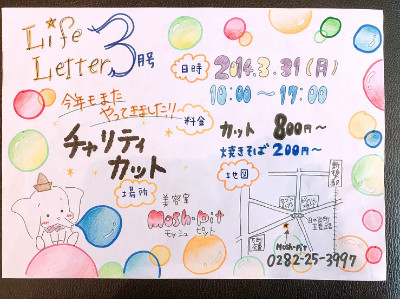 Life
Letter 3月号
日時 2014.3.31(月)
10:00〜17:00
今年もまた
やってきました!!
チャリティ
カット
料金
カット 800円〜
焼きそば 200円〜
場所
美容室
Mosh-pit
モッシュ ピット
地図
Mosh-Pit
0282-25-3997